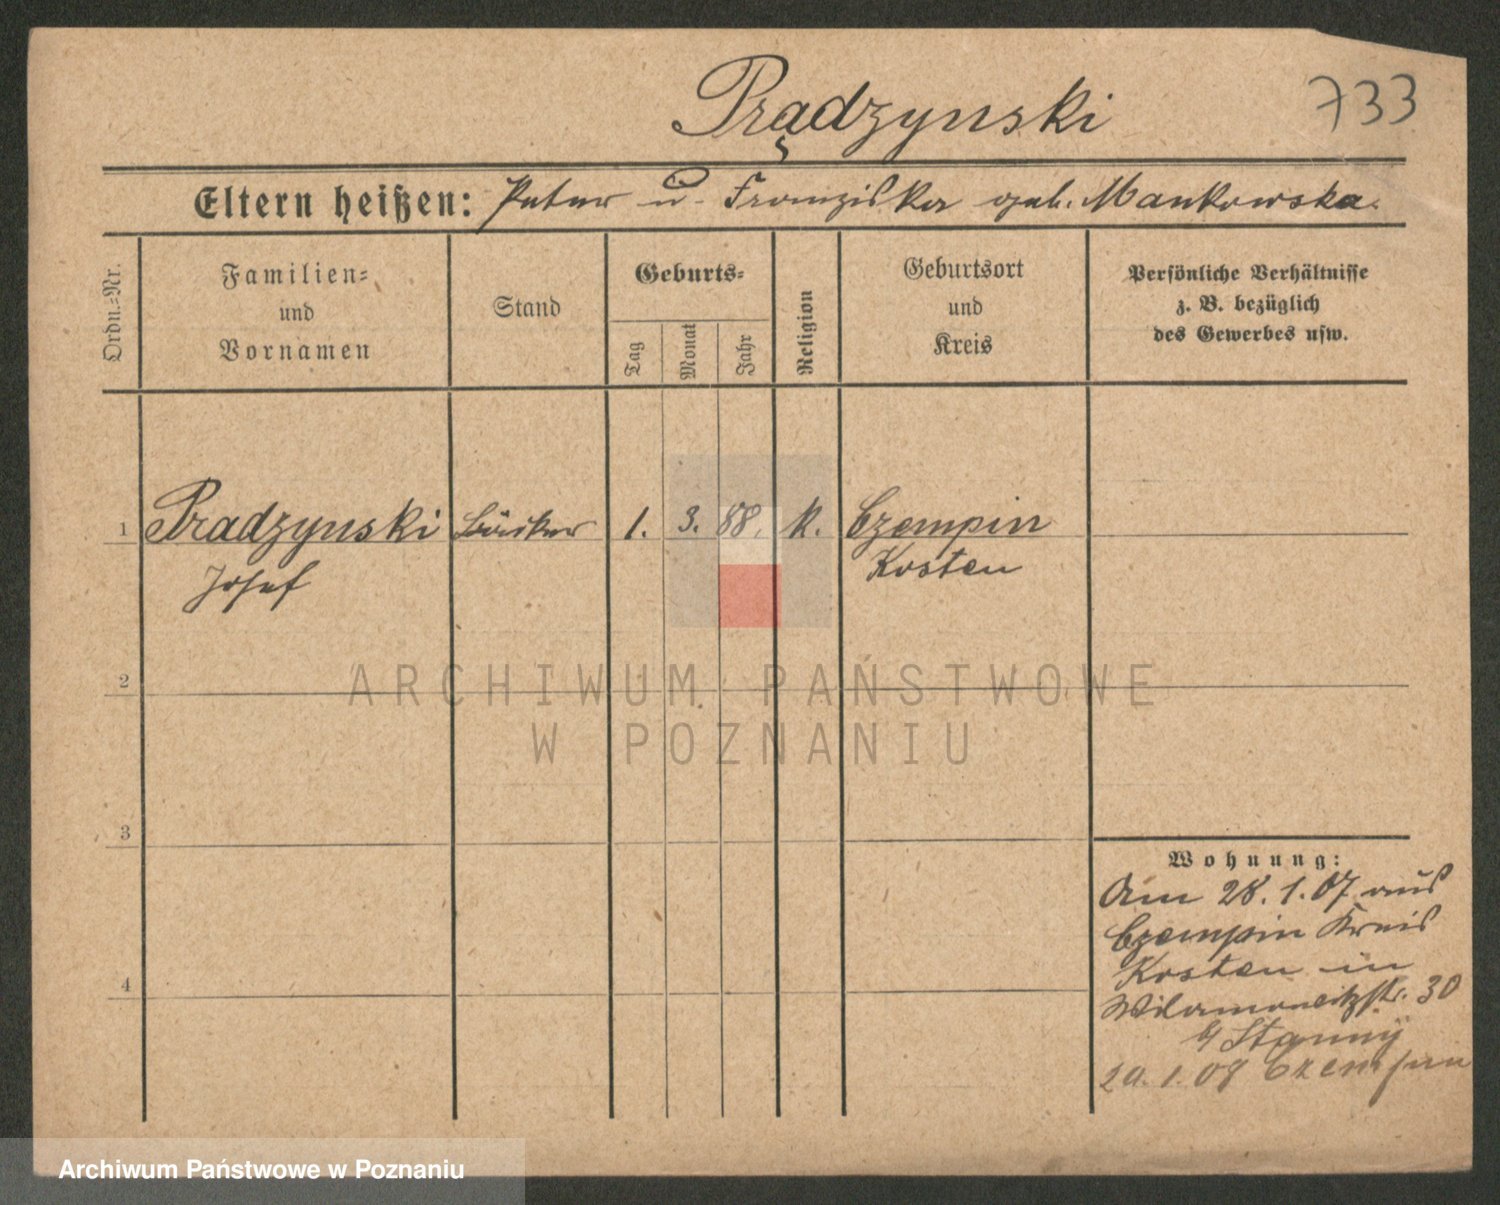 Prądzynski 733
Eltern heißen: Peter u. Franziska geb. Mankowska.
Ordn.=Nr.
Familien=
und
Vornamen
Stand
Geburts=
Tag
Monat
Jahr
Religion
Geburtsort
und
Kreis
Persönliche Verhältnisse
z. B. bezüglich
des Gewerbes usw.
1 Pradzynski Bäcker 1. 3. 88. k. Czempin
Josef Kosten
2
3
4
Wohnung:
Am 28. 1. 07 aus
Czempin Kreis
Kosten in
Wilamowitzstr. 30
b/ Stanny
20. 1. 08 Czempin
ARCHIWUM PAŃSTWOWE
W POZNANIU
Archiwum Państwowe w Poznaniu